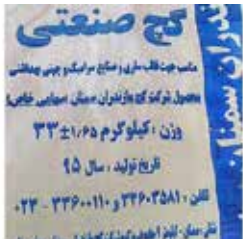 گچ صنعتی
مناسب جهت قالب سازی و صنایع سرامیک و چینی بهداشتی
محصول شرکت گچ مازندران سمنان (سهامی خاص)
وزن : کیلوگرم ۱/۶۵±۳۳
تاریخ تولید : سال ۹۵
تلفن : ۳۳۶۰۳۵۸۱ و ۳۳۶۰۰۱۱۰ - ۰۲۳
ندران سمنان